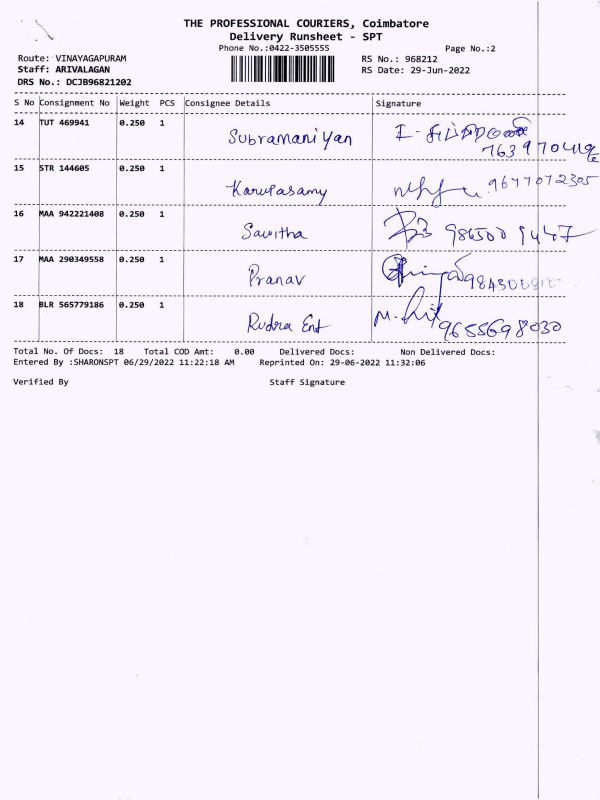 THE PROFESSIONAL COURIERS, Coimbatore
Delivery Runsheet - SPT
Phone No.:0422-3505555
Page No.:2
Route: VINAYAGAPURAM
RS No.: 968212
Staff: ARIVALAGAN
RS Date: 29-Jun-2022
DRS No.: DCJB96821202
S No Consignment No Weight PCS Consignee Details Signature
14 TUT 469941 0.250 1 Subramaniyan
15 STR 144605 0.250 1 Karupasamy 9677072305
16 MAA 942221408 0.250 1 Savitha
17 MAA 290349558 0.250 1 Pranav
18 BLR 565779186 0.250 1 Rudra Ent 9655698030
Total No. Of Docs: 18 Total COD Amt: 0.00 Delivered Docs: Non Delivered Docs:
Entered By :SHARONSPT 06/29/2022 11:22:18 AM Reprinted On: 29-06-2022 11:32:06
Verified By Staff Signature